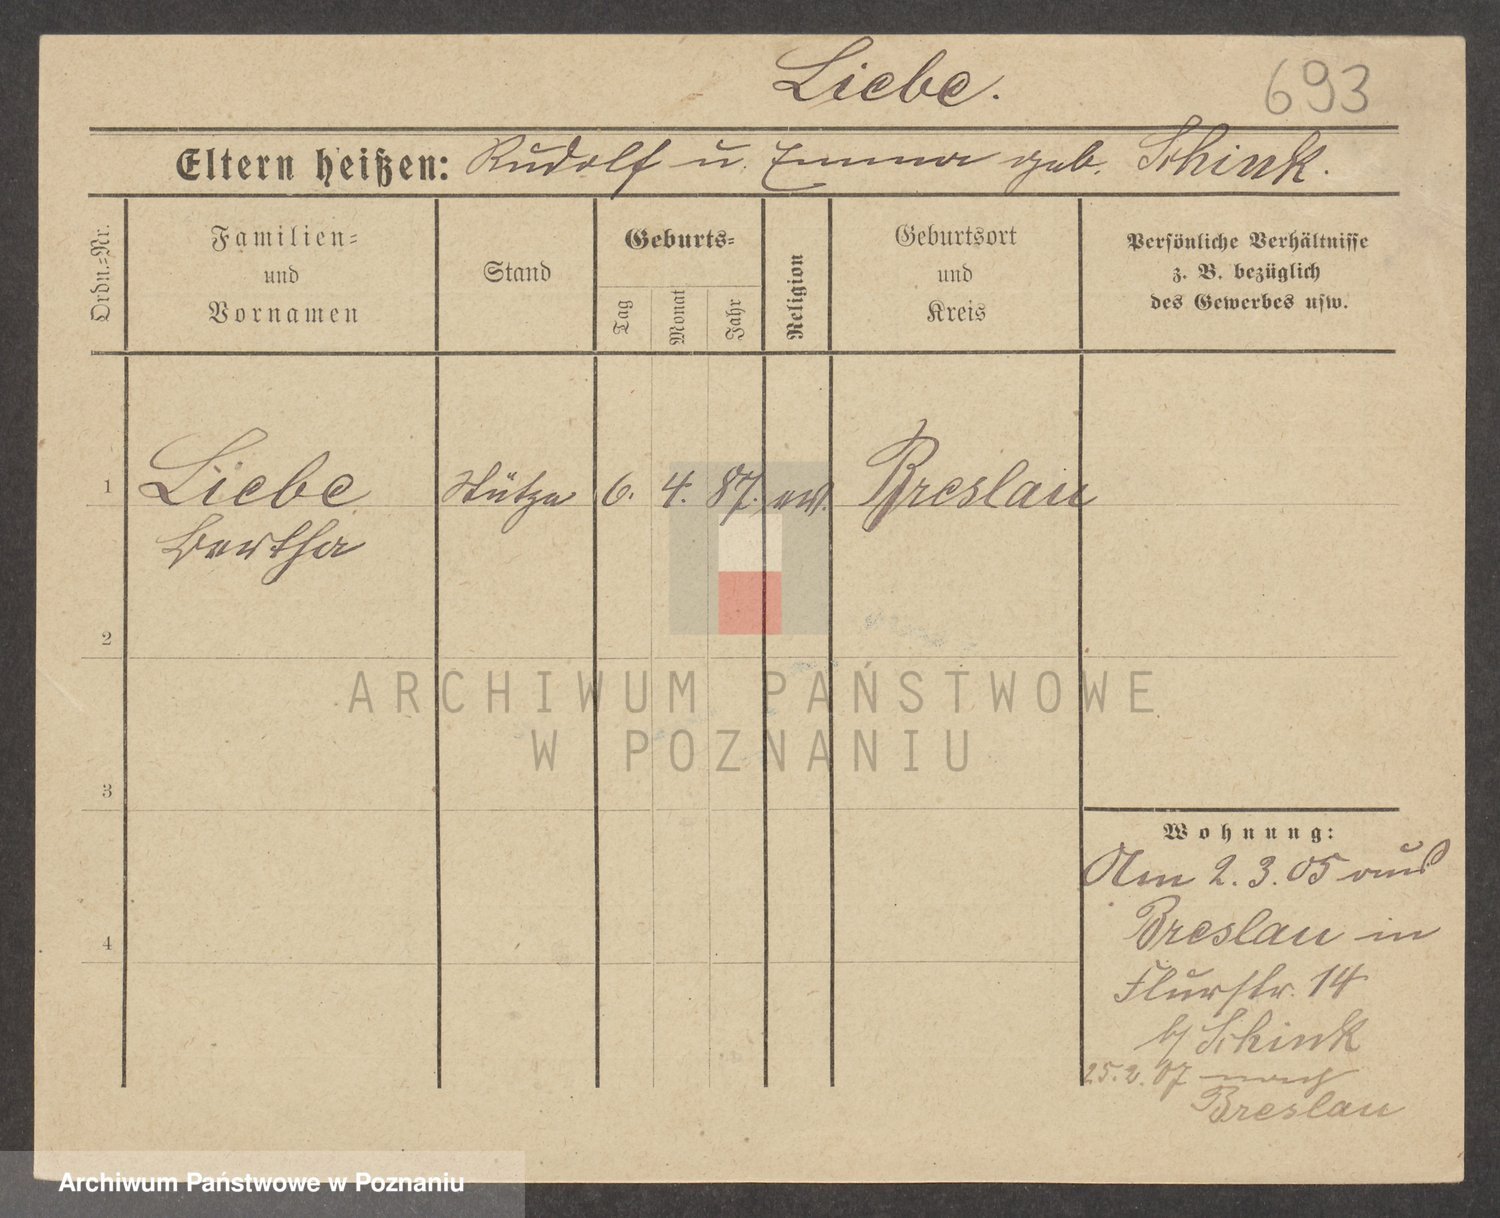 Liebe.
693
Eltern heißen: Rudolf u. Emma geb. Schink.
Ordn.=Nr.
Familien=
und
Vornamen
Stand
Geburts=
Tag
Monat
Jahr
Religion
Geburtsort
und
Kreis
Persönliche Verhältnisse
z. B. bezüglich
des Gewerbes usw.
1 Liebe Stütze 6. 4. 87. ev. Breslau
Bertha
2
3
4
Wohnung:
Am 2.3.05 aus
Breslau in
Flurstr. 14
b/ Schink
25.2.07 nach
Breslau
ARCHIWUM PAŃSTWOWE
W POZNANIU
Archiwum Państwowe w Poznaniu